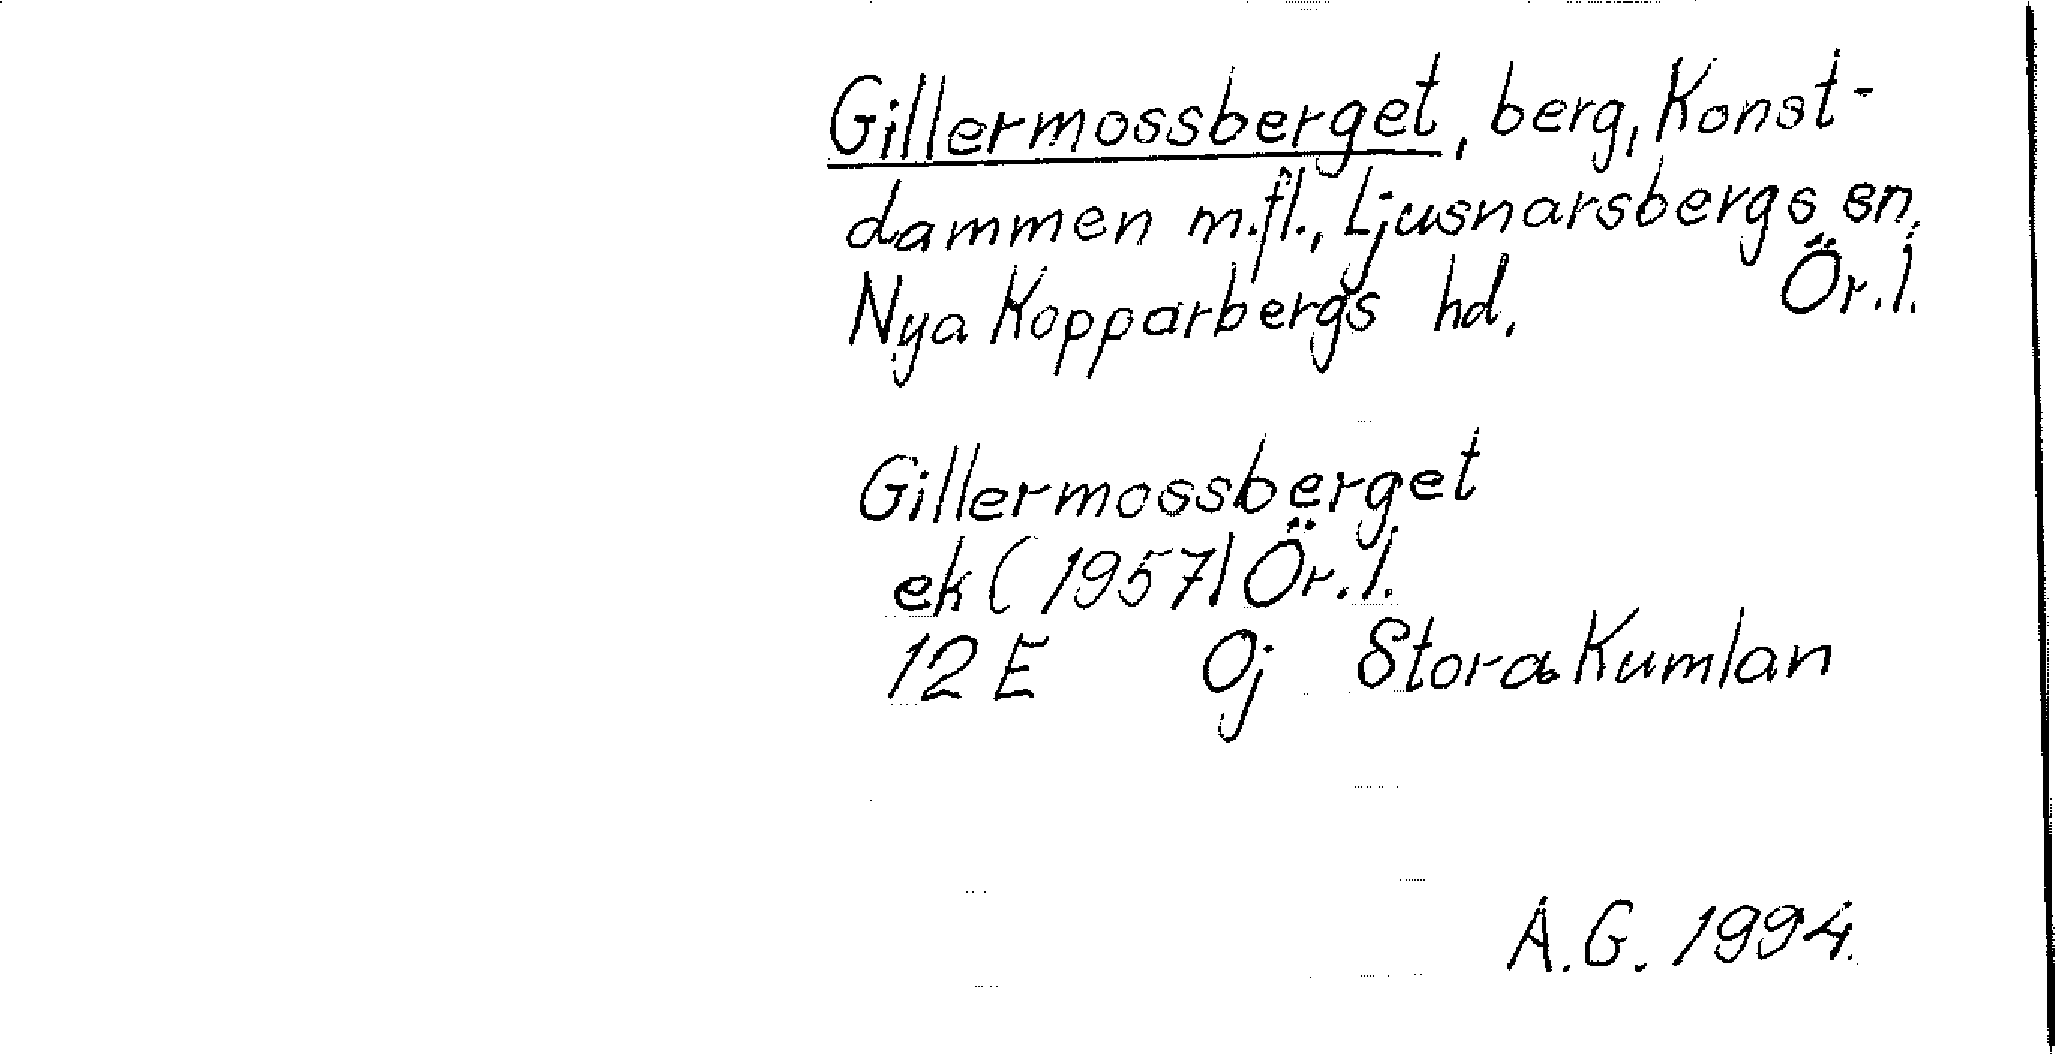 Gillermossberget, berg, Konst-
dammen m.fl., Ljusnarsbergs sn,
Nya Kopparbergs hd. Ör.l.
Gillermossberget
ek (1957) Ör.l.
12 E 0j Stora Kumlan
A.G. 1994.